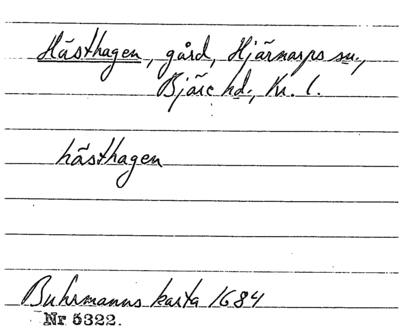 Hästhagen, gård, Hjärnarps sn.,
Bjäre hd., Kr. l.
hästhagen
Buhrmanns karta 1684
Nr 5322.